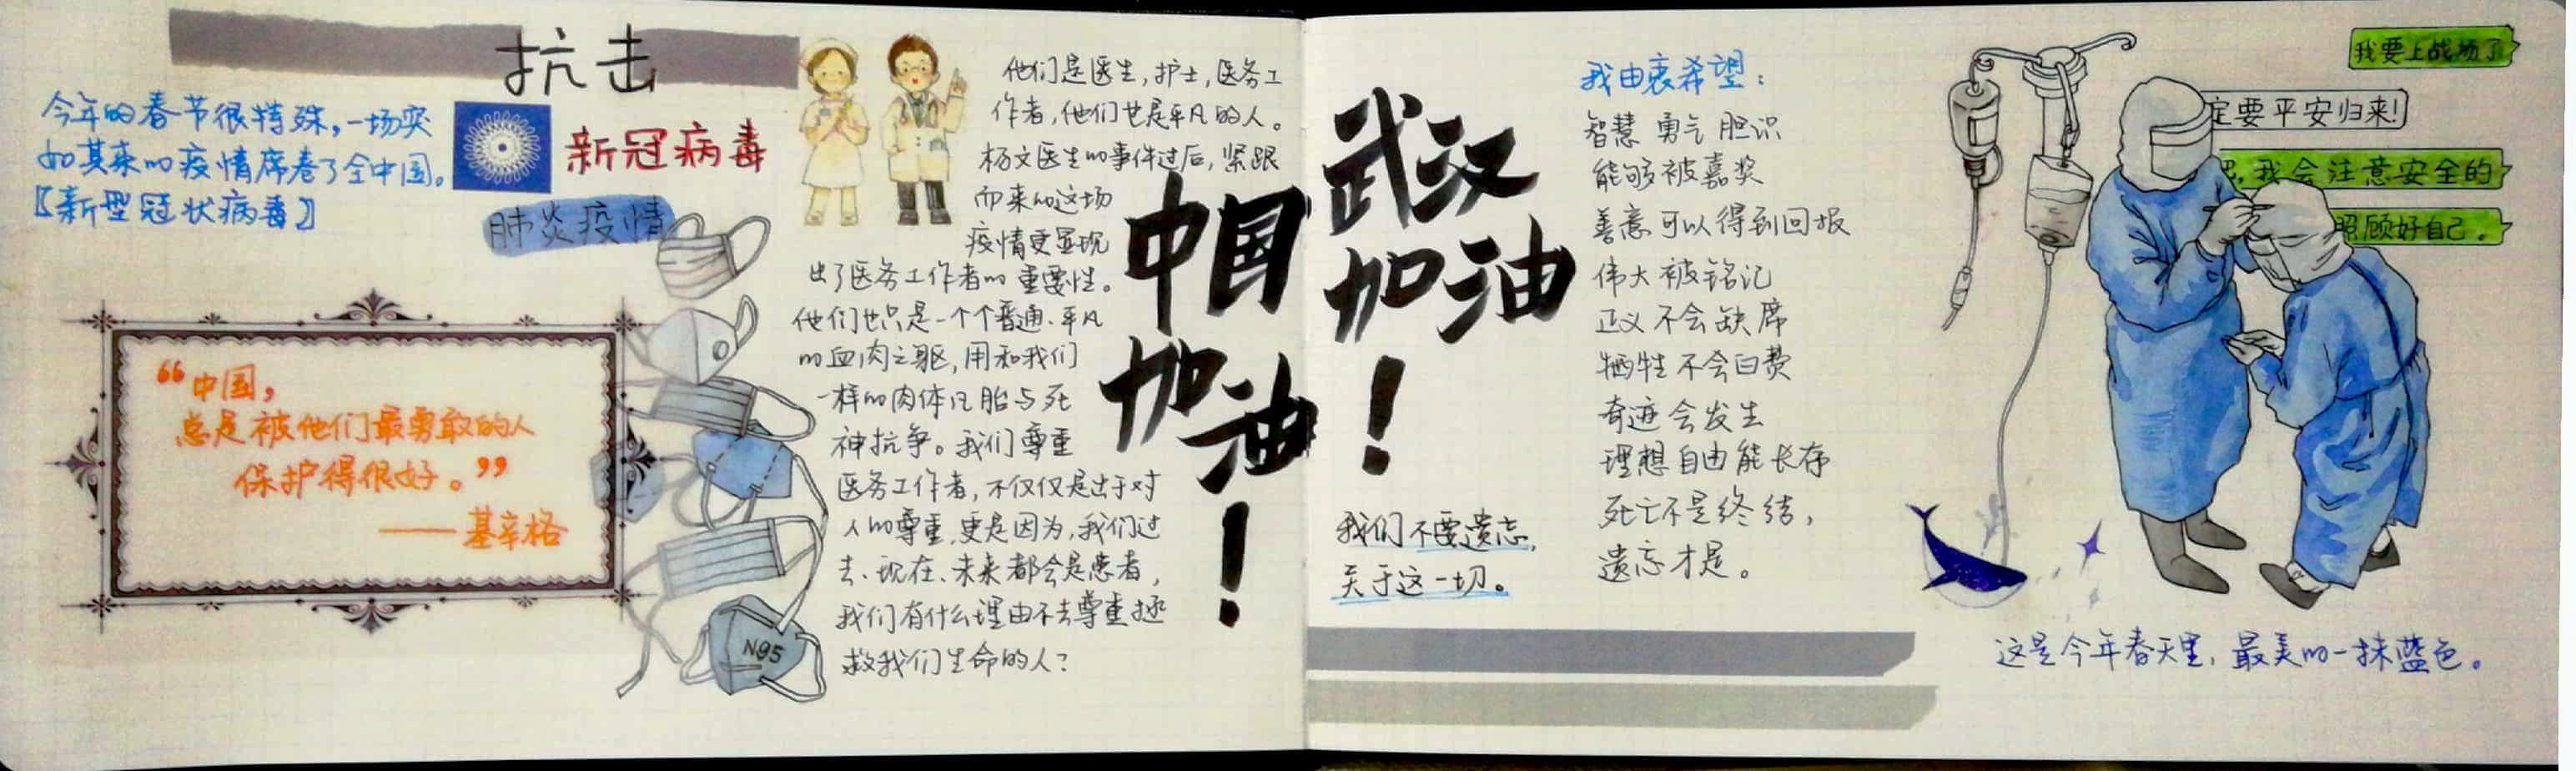 抗击
今年的春节很特殊，一场突
如其来的疫情席卷了全中国。
【新型冠状病毒】
新冠病毒
肺炎疫情
“中国，
总是被他们最勇敢的人
保护得很好。”
——基辛格
N95
他们是医生，护士，医务工
作者，他们也是平凡的人。
杨文医生的事件过后，紧跟
而来的这场
疫情更显现
出了医务工作者的重要性。
他们也只是一个个普通、平凡
的血肉之躯，用和我们
一样的肉体凡胎与死
神抗争。我们尊重
医务工作者，不仅仅是出于对
人的尊重，更是因为，我们过
去、现在、未来都会是患者，
我们有什么理由不去尊重拯
救我们生命的人？
中国
加油
！
武汉
加油
！
我们不要遗忘，
关于这一切。
我由衷希望：
智慧 勇气 胆识
能够被嘉奖
善意可以得到回报
伟大被铭记
正义不会缺席
牺牲不会白费
奇迹会发生
理想自由能长存
死亡不是终结，
遗忘才是。
我要上战场了
定要平安归来！
吧，我会注意安全的
照顾好自己。
这是今年春天里，最美的一抹蓝色。